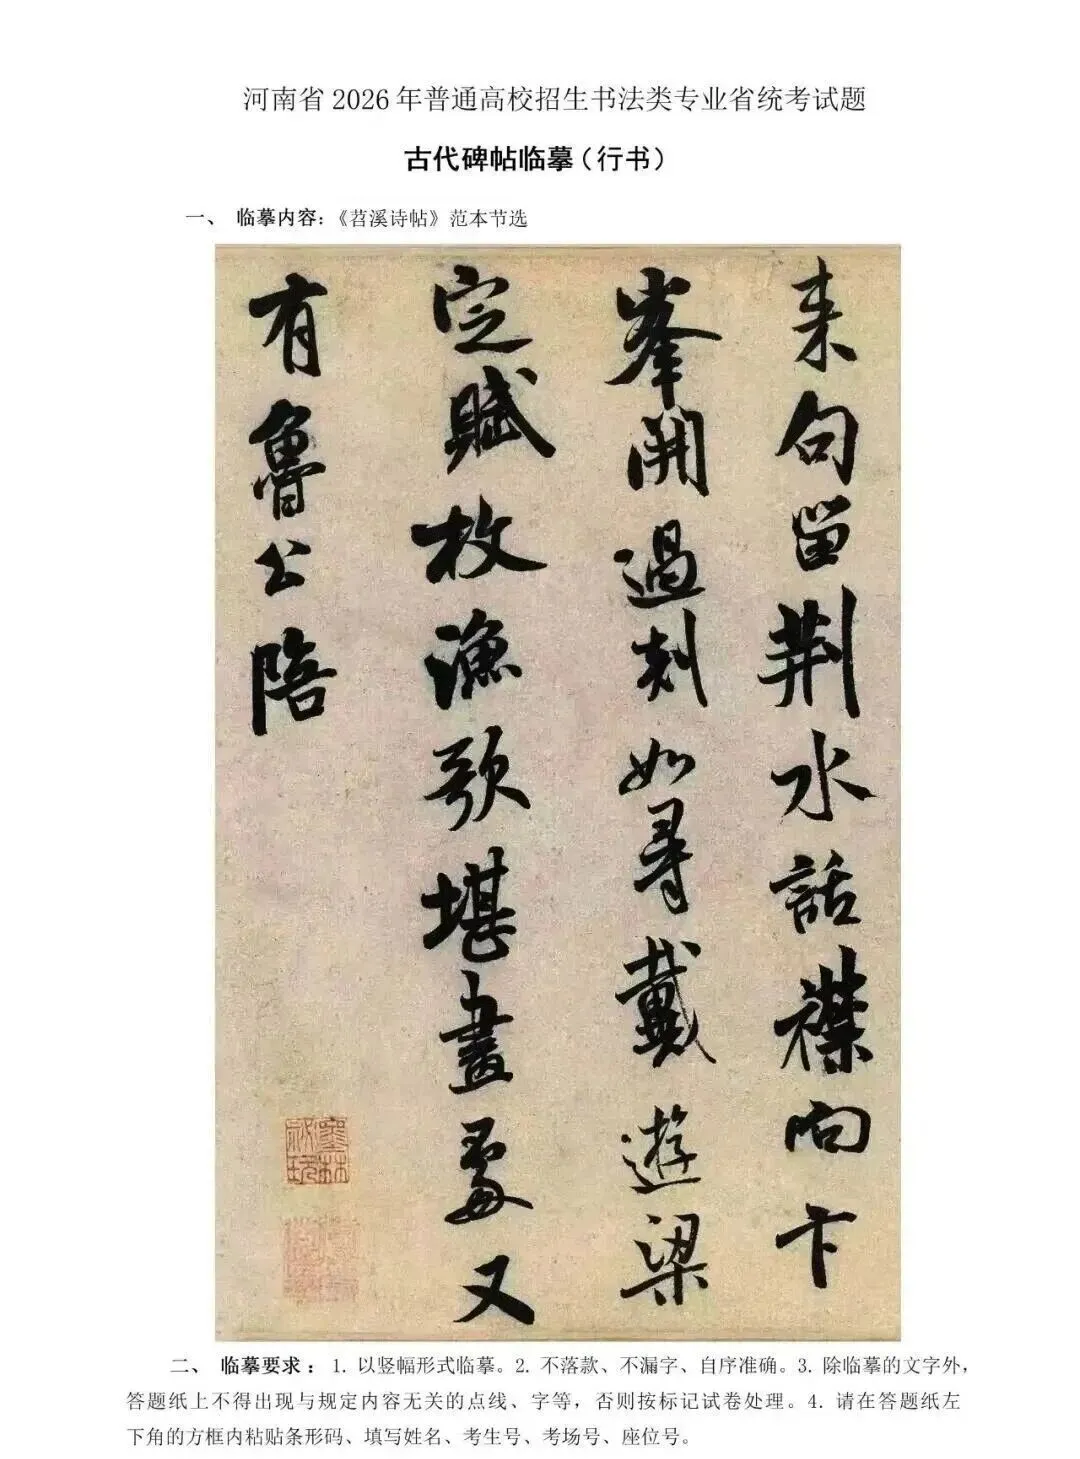 河南省 2026 年普通高校招生书法类专业省统考试题
古代碑帖临摹（行书）
一、 临摹内容：《苕溪诗帖》范本节选
来句留荆水話襟向卞
峯開過剡如尋戴遊梁
定賦枚漁歌堪畫處又
有魯公陪
二、 临摹要求：1. 以竖幅形式临摹。2. 不落款、不漏字、自序准确。3. 除临摹的文字外，
答题纸上不得出现与规定内容无关的点线、字等，否则按标记试卷处理。4. 请在答题纸左
下角的方框内粘贴条形码、填写姓名、考生号、考场号、座位号。